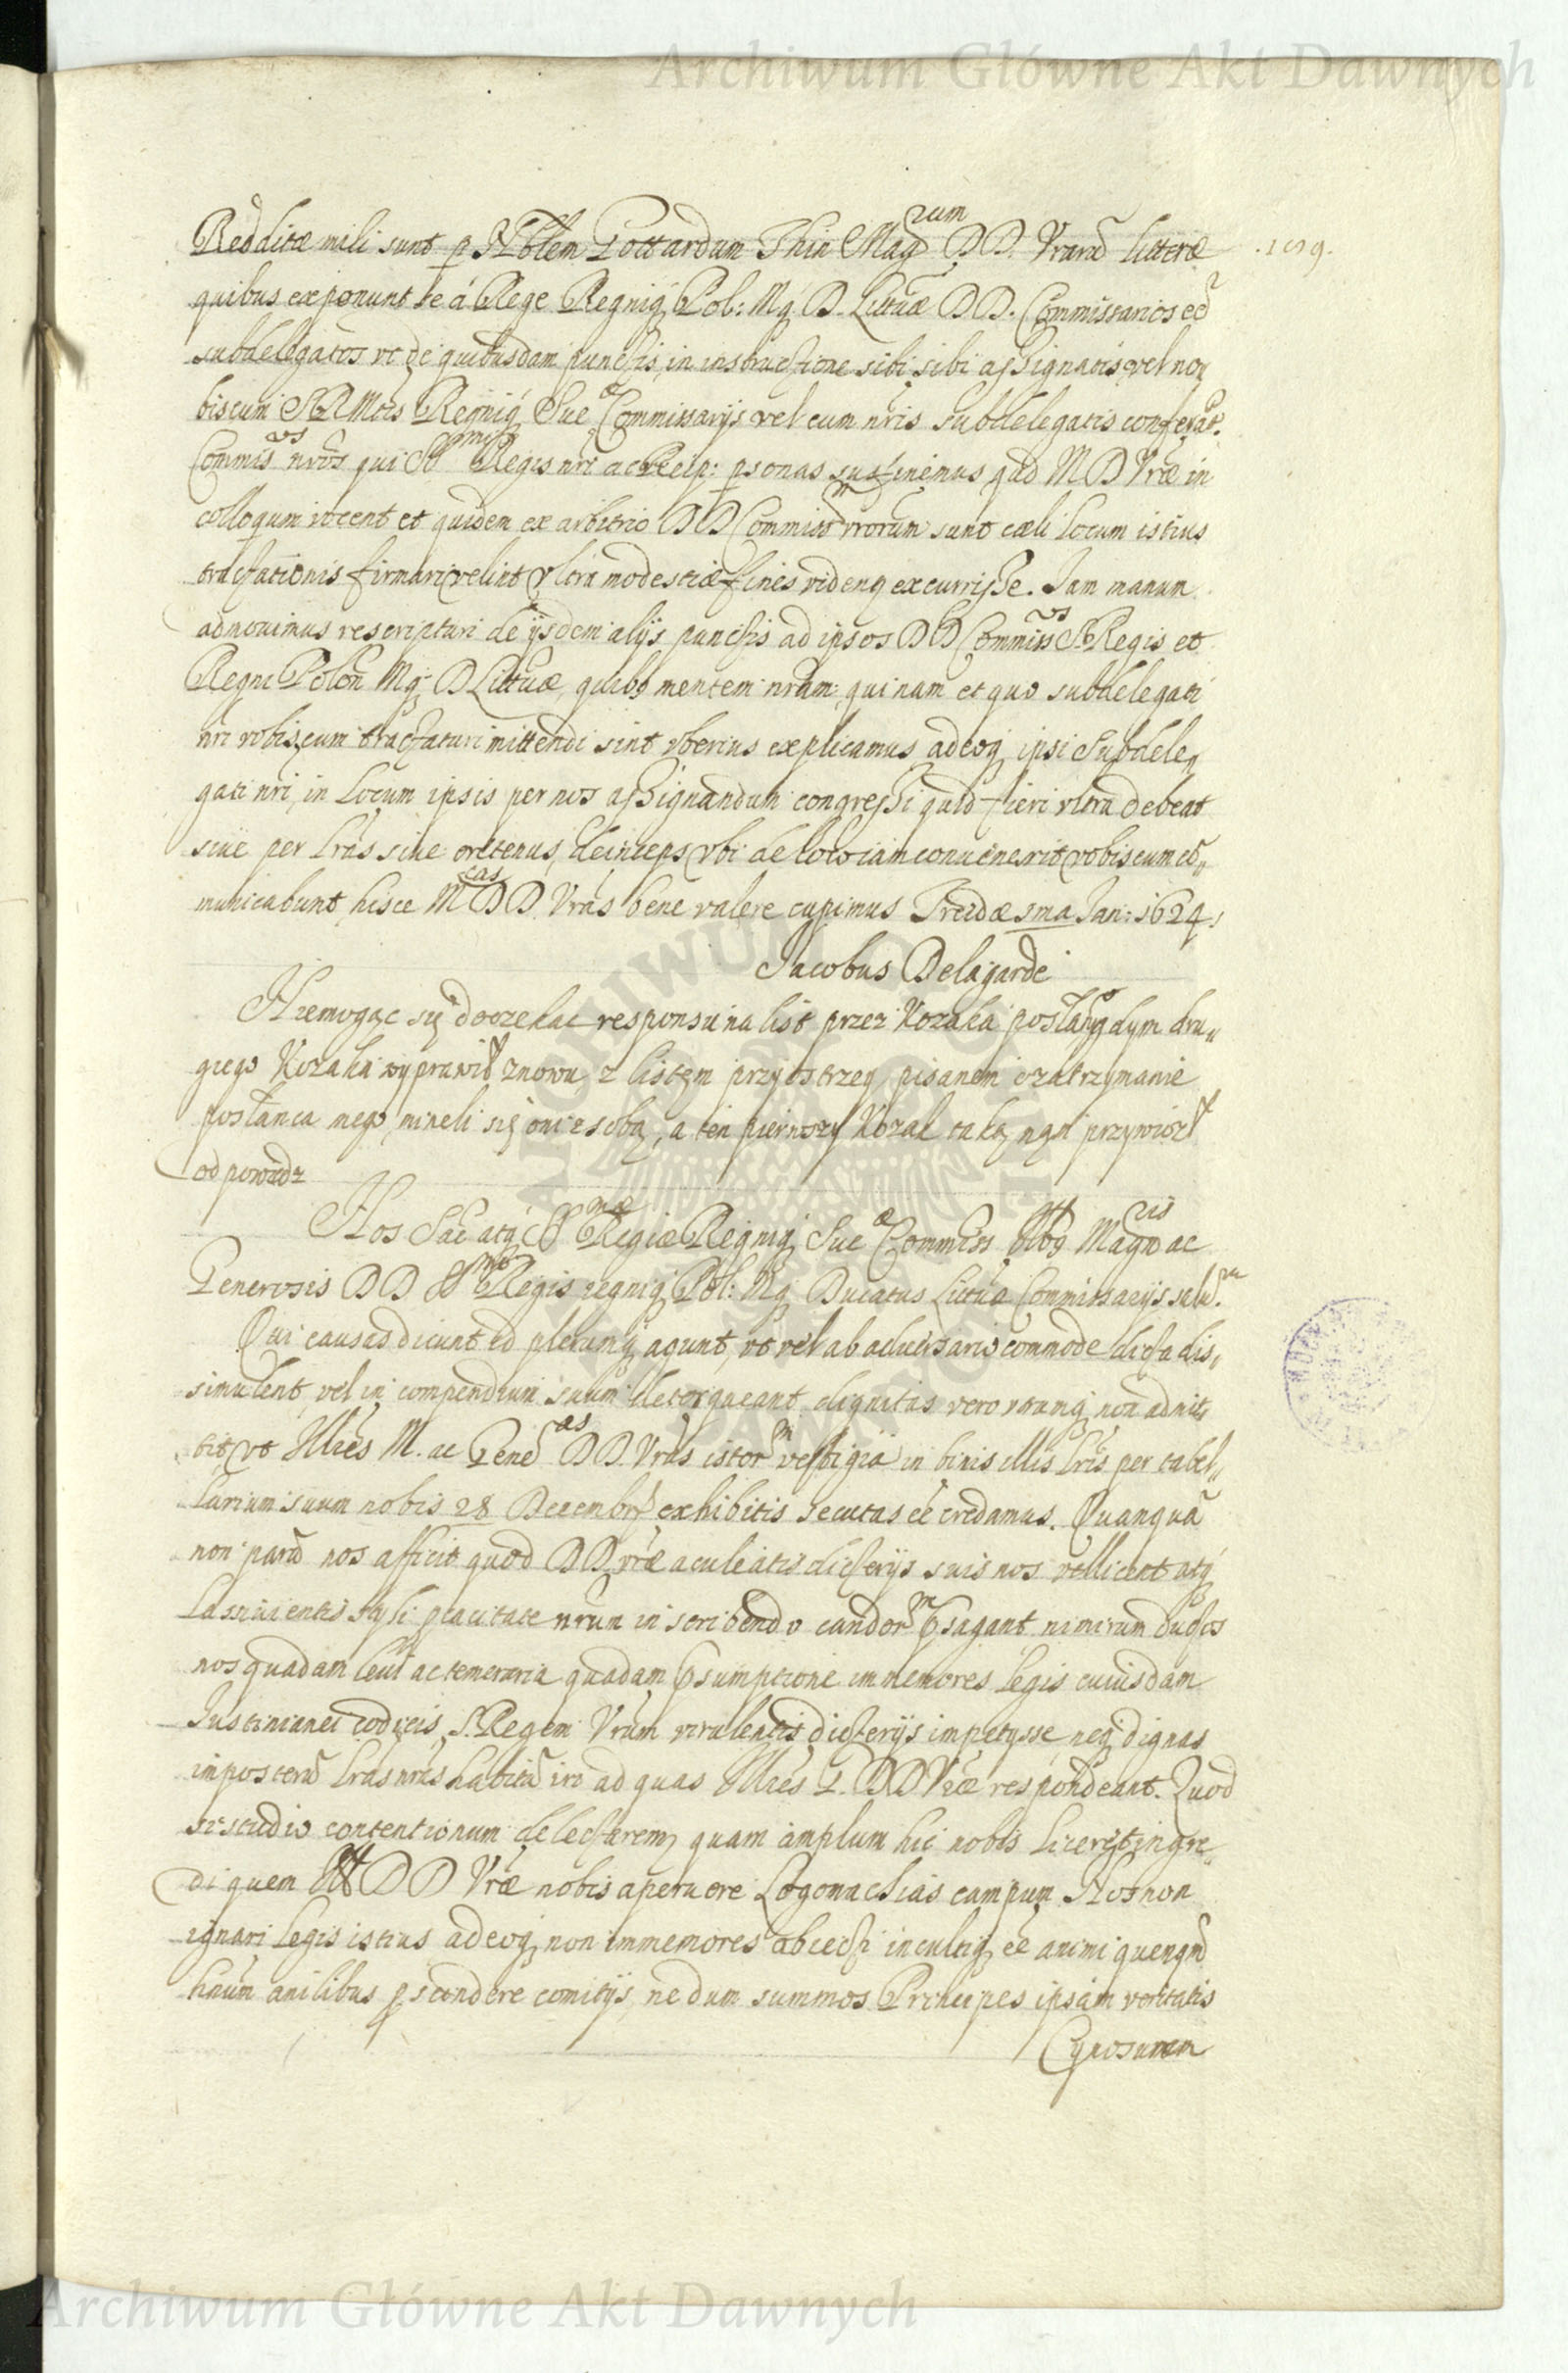 Archiwum Główne Akt Dawnych
Redditæ mihi sunt p Nblem Gottardum Thin Magrum DD. Vrarũ litteræ
.1019.
quibus exponunt se á Rege Regniq́ Pol: Mq́ D. Littuæ DD. Commissarios eo
subdelegatos vt de quibusdam punctis, in instructione sibi sibi assignatis, vel no,,
biscum SRMtis Regniq́ Sueæ Commissarijs vel cum nris subdelegatis conferãt.
Commisvs nros qui Smi Regis nri ac Reip: psonas sustinemus qđ MD Vræ in
colloqum vocent et quidem ex arbitrio DD Commissm vrorum sunt cæli Locum istius
tractationis firmari velint vltra modestiæ fines videnq excurrisse. Jam manum
admouimus rescripturi de ijsdem alijs punctis ad ipsos DD Commissvs S Regis et
Regni Polon Mq́ D Littuæ, quibs mentem nram, quinam et quo subdelegati
nri vobiscum tractaturi mittendi sint vberius explicamus adeoq́ ipsi Subdele,,
gati nri, in Locum ipsis per nos assignandum congressi quid fieri vltra debeat
siue per lras siue oretenus, deinceps vbi de loco iam conuenerit vobiscum cõ,,
municabunt, hisce Mcas DD. Vrás bene valere cupimus Treidæ 5ma Jan: 1624.
Jacobus Delagarde
Niemogąc się doczekac responsu na list przez Kozaka posłany dym dru,,
giego Kozaka wyprawił znowu z listem przyostrzey pisanem o zatrzymanie
posłanca mego, mineli się oni z sobą, a ten pierwszy Kozak taką nąn przywiozł
odpowiedz
Nos Sac atq́ Smæ Regiæ Regniq́ Sueæ Commiss Illbs Magnis ac
Generosis DD Smi Regis regniq́ Pol: Mq́ Ducatus Littuæ Commissarijs salutm.
Qui causas dicunt id plerumq́ agunt, vt vel ab aduersario commode dicta dis,,
simulent, vel in compendium suum detorqueant, dignitas vero vtrumq́ non admit,,
tit vt Illrés M. ac Geneas DD. Vras istorm vestigia in binis illis lris per tabel,,
larium suum nobis 28 Decembr exhibitis secutas eé credamus. Quanquã
non parũ nos afficit quod DD vræ aculeatis dicterijs suis nos vellicent atq́
lasciuientis styli nrum in scribendo candorm nimirum
nos quadam leui ac temeraria quadam psumptione immemores legis cuiusdam
Justinianei codicis, S. Regem Vrum virulentis dicterijs impetysse neq́ dignas
imposterũ lras nras habitũ iri ad quas Illrés G. DD Vræ respondeant. Quod
si studio contentionum delectaremr quam amplum hic nobis liceret ingre,,
di quem Ill DD Vræ nobis aperuere Logomachias campum. Nos non
ignari legis istius adeoq́ non immemores abiecti incultiq́ eé animi quenqũ
haũm anilibus pscindere comitijs, nedum summos Principes ipsam veritatis
Cynosuram
Archiwum Główne Akt Dawnych